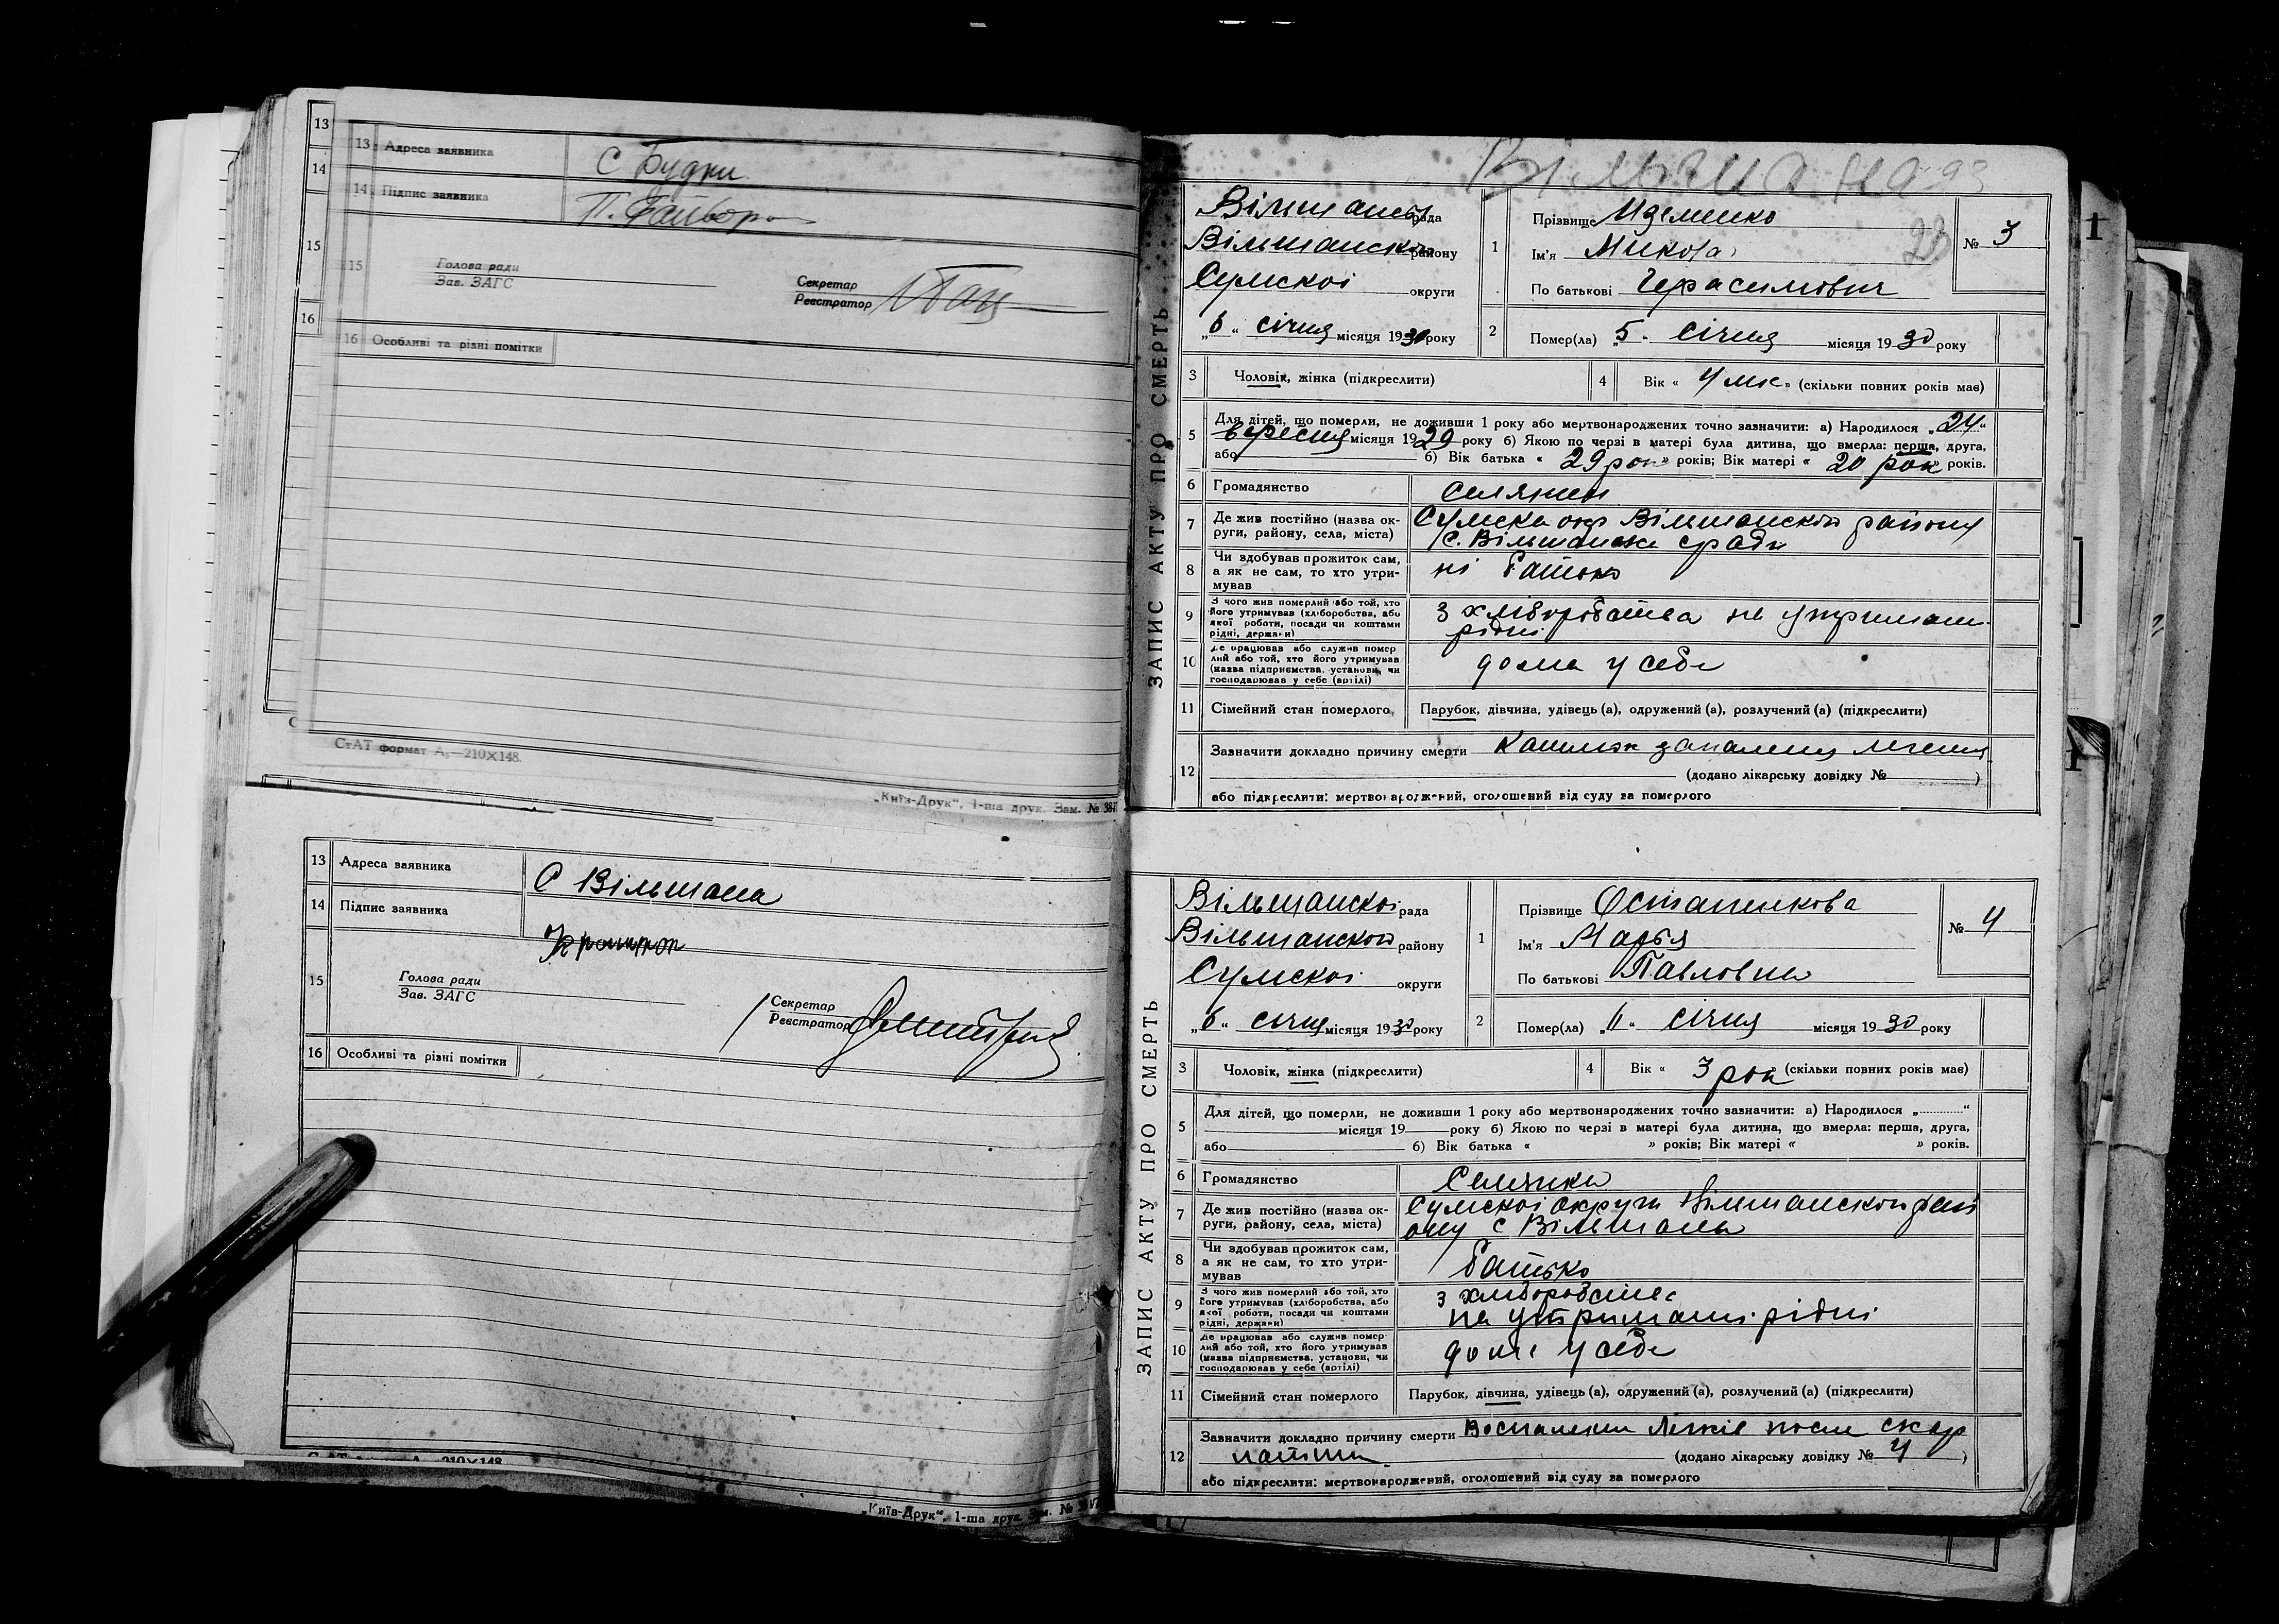 13
14
15
16
13 Адреса заявника С Будки
14 Підпис заявника П.
15 Голова ради
Зав. ЗАГС
Секретар
Реєстратор
16 Особливі та різні помітки
СтАТ формат А₅—210×148.
„Київ-Друк“, 1-ша друк. Зам. №
13 Адреса заявника С Вільшана
14 Підпис заявника
15 Голова ради
Зав. ЗАГС
Секретар
Реєстратор
16 Особливі та різні помітки
210×148
„Київ-Друк“, 1-ша друк. Зам. №
Вільшана
ЗАПИС АКТУ ПРО СМЕРТЬ
рада
Вільшанскои району
Сумскоі округи
„6“ січня місяця 1930 року
1 Прізвище
Ім'я Микола
По батькові Герасимович
№ 3
28
2 Помер(ла) „5“ Січня місяця 1930 року
3 Чоловік, жінка (підкреслити)
4 Вік « 4 міс » (скільки повних років має)
5 Для дітей, що померли, не доживши 1 року або мертвонароджених точно зазначити: а) Народилося „24“
вересня місяця 1929 року б) Якою по черзі в матері була дитина, що вмерла: перша, друга,
або б) Вік батька « 29 рок » років; Вік матері « 20 рок » років.
6 Громадянство Селянин
7 Де жив постійно (назва округи, району, села, міста) Сумска окр Вільшанскои району
с. Вільшанска
8 Чи здобував прожиток сам, а як не сам, то хто утримував ні батько
9 З чого жив померлий або той, хто його утримував (хліборобства, або якої роботи, посади чи коштами рідні, держави) з хліборобства на утримані
рідні
10 Де працював або служив померлий або той, хто його утримував (назва підприємства, установи, чи господарював у себе (артілі) дома у себе
11 Сімейний стан померлого Парубок, дівчина, удівець (а), одружений (а), розлучений (а) (підкреслити)
12 Зазначити докладно причину смерти запаления
(додано лікарську довідку № )
або підкреслити: мертвонароджений, оголошений від суду за померлого
ЗАПИС АКТУ ПРО СМЕРТЬ
Вільшанскоі рада
Вільшанскои району
Сумскоі округи
„6“ січня місяця 1930 року
1 Прізвище Осташенкова
Ім'я Марья
По батькові Павловна
№ 4
2 Помер(ла) „11“ січня місяця 1930 року
3 Чоловік, жінка (підкреслити)
4 Вік « 3 рок (скільки повних років має)
5 Для дітей, що померли, не доживши 1 року або мертвонароджених точно зазначити: а) Народилося „ “
місяця 19 року б) Якою по черзі в матері була дитина, що вмерла: перша, друга,
або б) Вік батька « » років; Вік матері « » років.
6 Громадянство Селянка
7 Де жив постійно (назва округи, району, села, міста) Сумскоі округи Вільшанскои рай
ону с Вільшана
8 Чи здобував прожиток сам, а як не сам, то хто утримував батько
9 З чого жив померлий або той, хто його утримував (хліборобства, або якої роботи, посади чи коштами рідні, держави) з хліборобства
на утримані рідні
10 Де працював або служив померлий або той, хто його утримував (назва підприємства, установи, чи господарював у себе (артілі) доме у себе
11 Сімейний стан померлого Парубок, дівчина, удівець (а), одружений (а), розлучений (а) (підкреслити)
12 Зазначити докладно причину смерти Воспаления после скар
латини (додано лікарську довідку № 4 )
або підкреслити: мертвонароджений, оголошений від суду за померлого